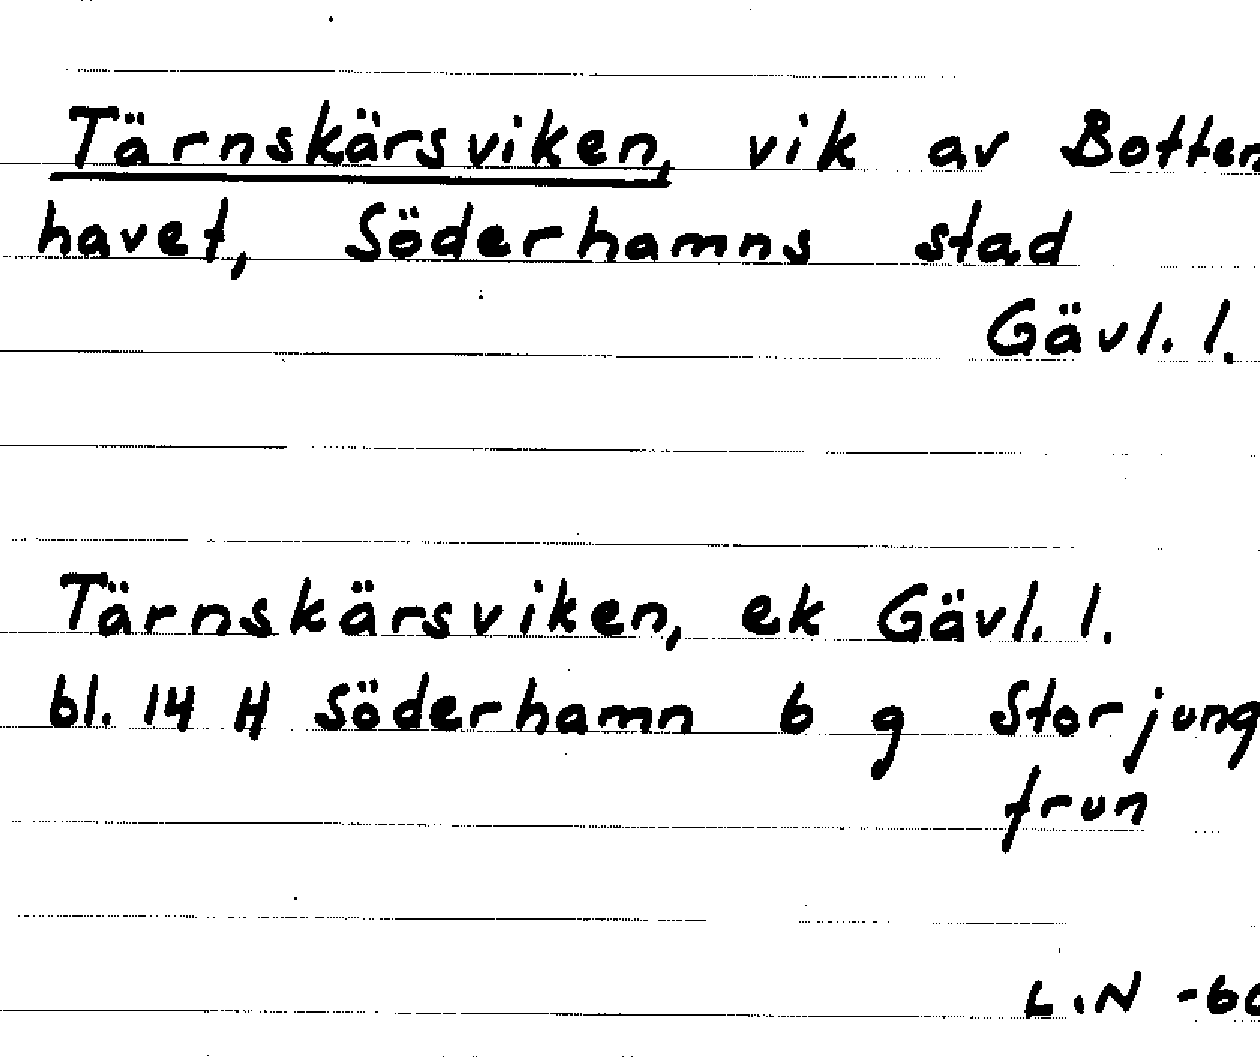 Tärnskärsviken, vik av Botten
havet, Söderhamns stad
Gävl. l.
Tärnskärsviken, ek Gävl. l.
bl. 14 H Söderhamn 6 g Storjung
frun
L.N -60